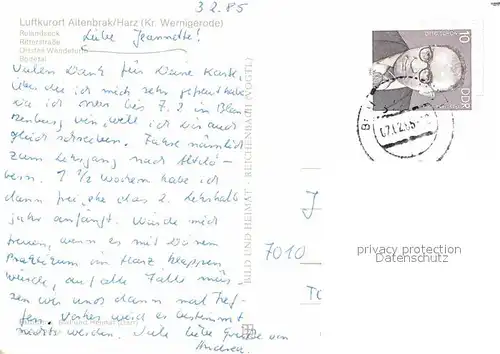 3 2. 85
Luftkurort Altenbrak/Harz (Kr. Wernigerode)
Liebe Jeannette!
Ritterstraße
Ortsteil Wendefurth
Bodetal
Vielen Dank für Deine Karte,
über die ich mich sehr gefreut habe.
Da ich nur bis 7. 2 in Blan-
kenburg bin, will ich Dir auch
gleich schreiben. Fahre nämlich
zum Lehrgang nach
bern. 1 1/2 Wochen habe ich
dann frei, ehe das 2. Lehrhalb
jahr anfängt. Würde mich
freuen, wenn es mit Deinem
Praktikum im Harz klappen
würde, auf alle Fälle müs-
sen wir uns dann mal tref-
fen. Vorher wird es bestimmt
nichts werden. Viele liebe Grüße von
Andrea.
Bild und Heimat
BILD UND HEIMAT · REICHENBACH (VOGTL)
10
DDR
7010
J
privacy protection
Datenschutz